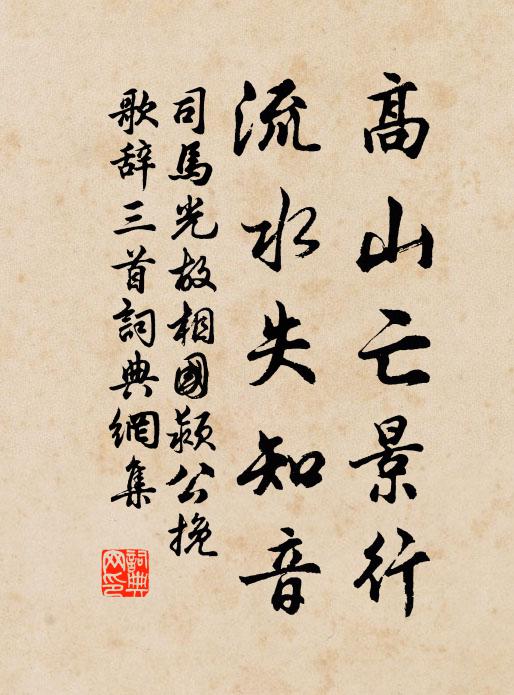 高山亡景行
流水失知音
司馬光故相國潁公挽
歌辞三首詞典網集
詞典
网印